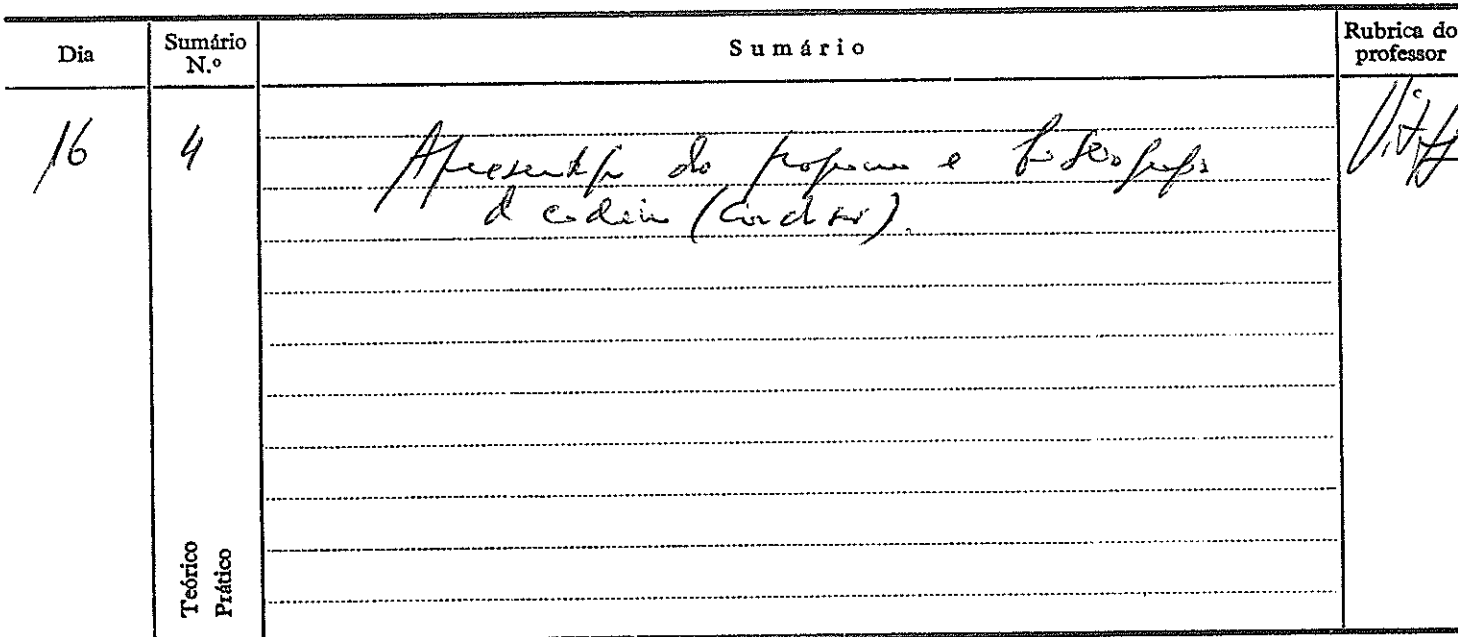 Dia
Sumário N.º
Sumário
Rubrica do professor
16
4
Apresentação do programa e bibliografia
da cadeira (conclusão).
Teórico
Prático